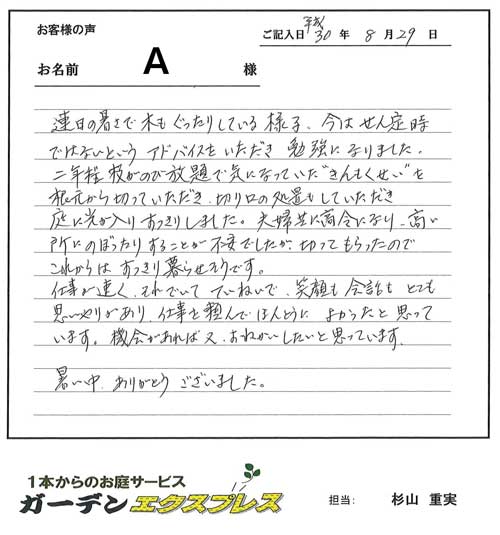 お客様の声
ご記入日 平成30年 8月29日
お名前 A 様
連日の暑さで木もぐったりしている様子、今はせん定時
ではないというアドバイスをいただき勉強になりました。
二年程枝がのび放題で気になっていた"きんもくせい"を
根元から切っていただき、切り口の処置もしていただき
庭に光が入りすっきりしました。夫婦共に高令になり、高い
所にのぼったりすることが不安でしたが、切ってもらったので
これからはすっきり暮らせそうです。
仕事が速く、それでいてていねいで、笑顔も会話もとても
思いやりがあり、仕事を頼んでほんとうによかったと思って
います。機会があれば又、おねがいしたいと思っています。
暑い中、ありがとうございました。
1本からのお庭サービス
ガーデンエクスプレス
担当: 杉山 重実